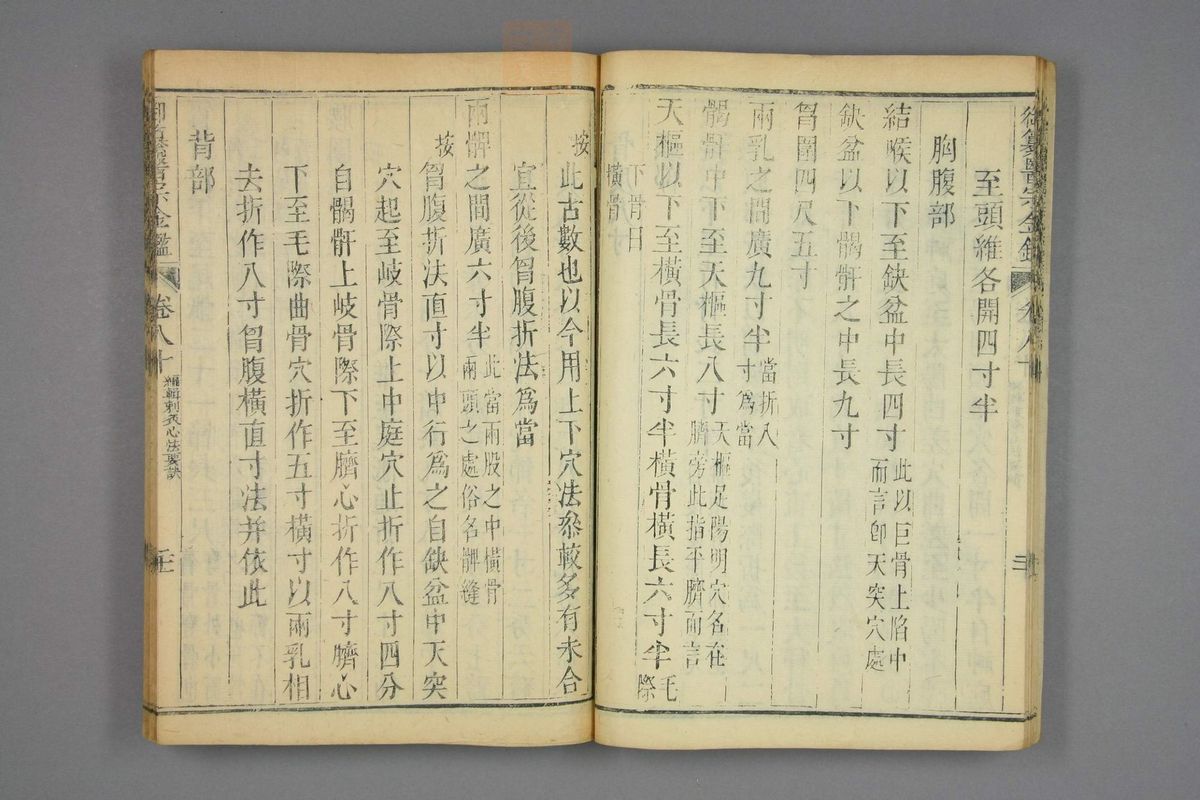 御纂醫宗金鑑 卷八十
至頭維各開四寸半
胸腹部
結喉以下至缺盆中長四寸 此以巨骨上陷中而言即天突穴處
缺盆以下𩩲骬之中長九寸
胷圍四尺五寸
兩乳之間廣九寸半 當折八寸為當
𩩲骬中下至天樞長八寸 天樞足陽明穴名在臍旁此指平臍而言
天樞以下至橫骨長六寸半橫骨橫長六寸半 毛際
下骨曰橫骨
按此古數也以今用上下穴法參較多有未合
宜從後胷腹折法為當
兩髀之間廣六寸半 此當兩股之中橫骨兩頭之處俗名髀縫
按胷腹折法直寸以中行為之自缺盆中天突
穴起至岐骨際上中庭穴止折作八寸四分
自𩩲骬上岐骨際下至臍心折作八寸臍心
下至毛際曲骨穴折作五寸橫寸以兩乳相
去折作八寸胷腹橫直寸法并依此
背部
御纂醫宗金鑑 卷八十 編輯刺灸心法要訣